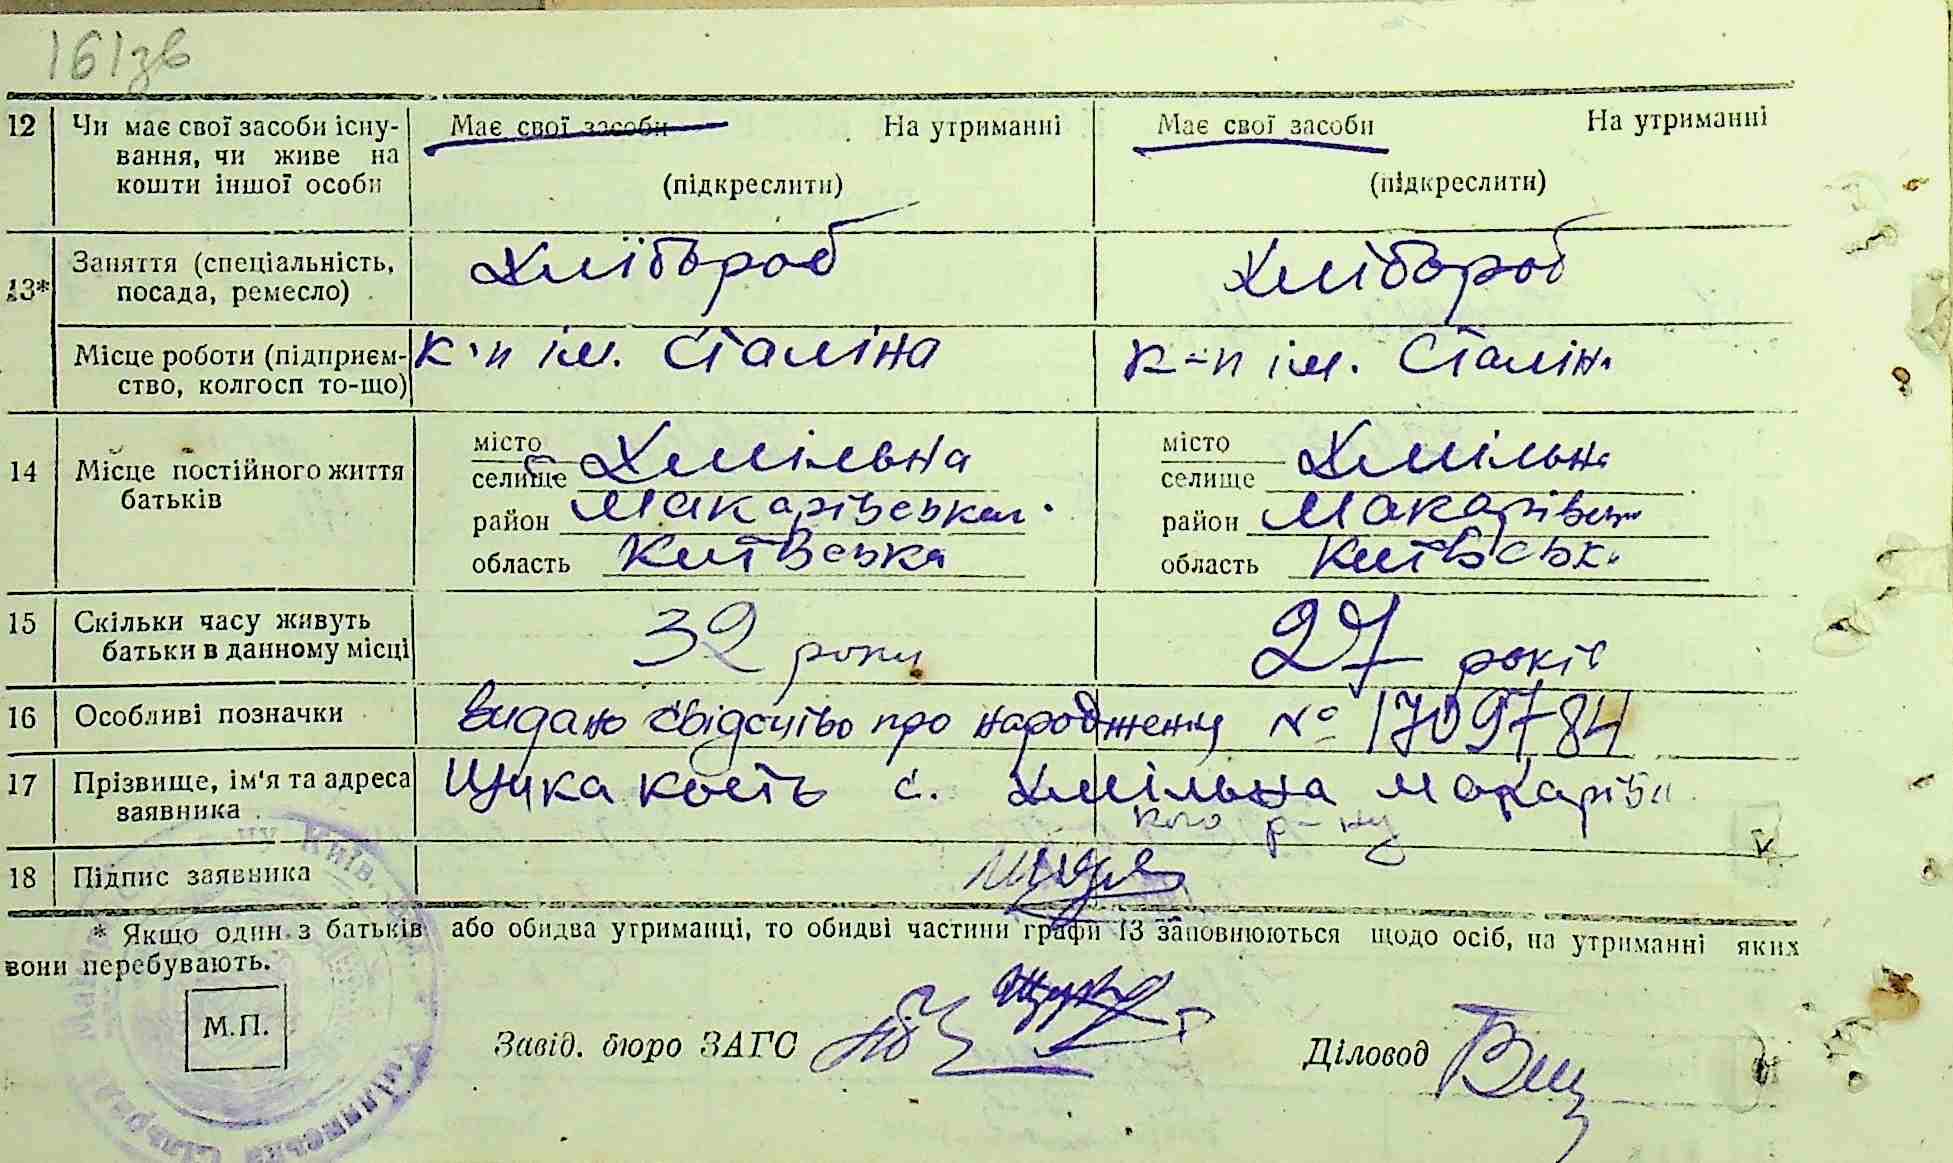 161зв
12 Чи має свої засоби існу- Має свої засоби На утриманні Має свої засоби На утриманні
вання, чи живе на
кошти іншої особи (підкреслити) (підкреслити)
13* Заняття (спеціальність, Хлібороб Хлібороб
посада, ремесло)
Місце роботи (підприєм- к-п ім. Сталіна к-п ім. Сталіна
ство, колгосп то-що)
14 Місце постійного життя місто Хмільна місто Хмільна
батьків селище селище
район Макарівськ район Макарівськ
область Київська область Київськ.
15 Скільки часу живуть 32 роки 27 років
батьки в данному місці
16 Особливі позначки Видано свідоцтво про народження № 1709784
17 Прізвище, ім'я та адреса Щика с. Хмільна Макарівс
заявника кого р-ну
18 Підпис заявника
* Якщо один з батьків або обидва утриманці, то обидві частини графи 13 заповнюються щодо осіб, на утриманні яких
вони перебувають.
М.П. Завід. бюро ЗАГС Діловод